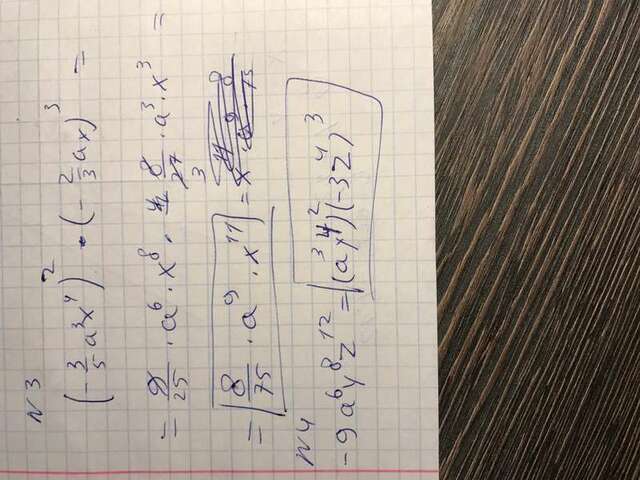 N 3
(-3/5 a³x⁴)² · (-2/3 ax)³ =
= 9/25 · a⁶ · x⁸ · 8/27 · a³ · x³ =
3
= 8/75 · a⁹ · x¹¹ =
N4
-9a⁶y⁸z¹² = (a³y⁴)²(-3z⁴)³